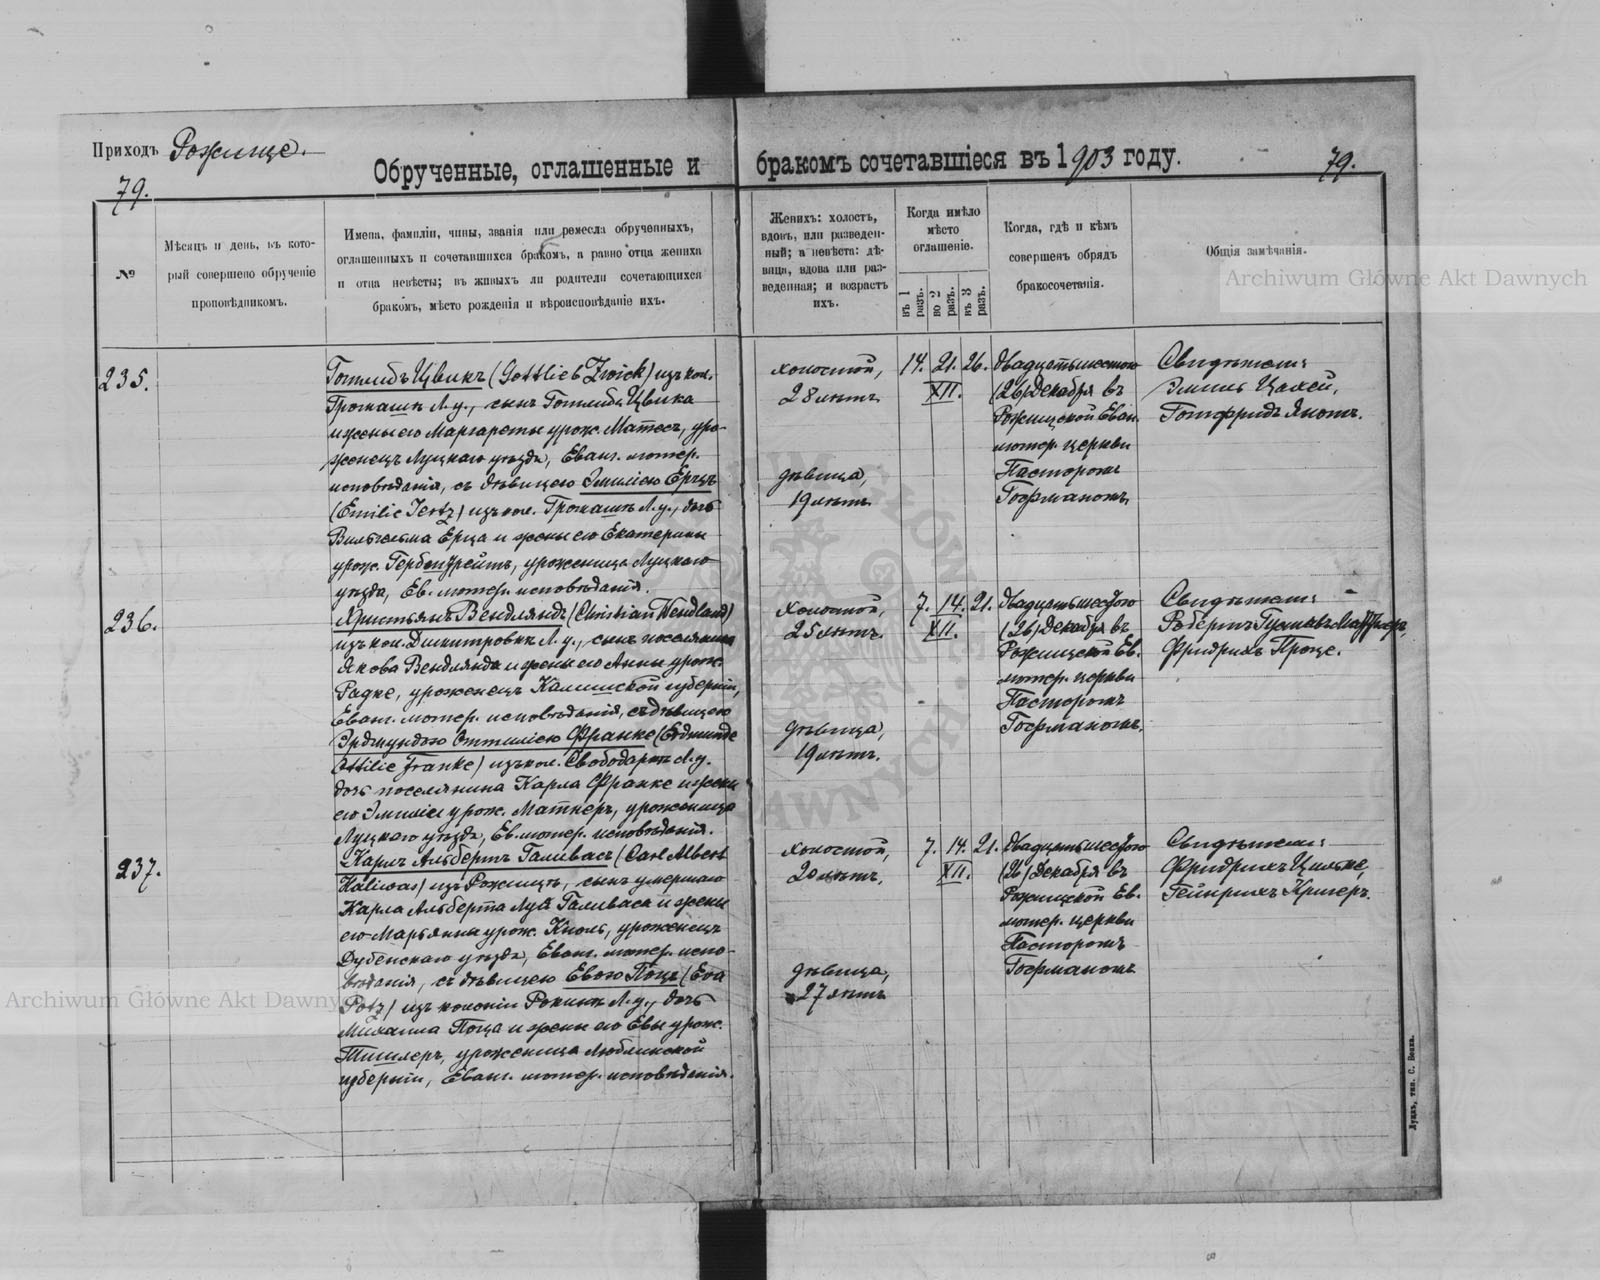 Приходъ Рожище.
79.
Обрученные, оглашенные и бракомъ сочетавшіеся въ 1903 году.
79.
№
Мѣсяцъ и день, въ кото-
рый совершено обрученіе
проповѣдникомъ.
Имена, фамиліи, чины, званія или ремесла обрученныхъ,
оглашенныхъ и сочетавшихся бракомъ, а равно отца жениха
и отца невѣсты; въ живыхъ ли родители сочетающихся
бракомъ, мѣсто рожденія и вѣроисповѣданіе ихъ.
Женихъ: холостъ,
вдовъ, или разведен-
ный; а невѣста: дѣ-
вица, вдова или раз-
веденная; и возрастъ
ихъ.
Когда имѣло
мѣсто
оглашеніе.
въ 1 разъ.
во 2 разъ.
въ 3 разъ.
Когда, гдѣ и кѣмъ
совершенъ обрядъ
бракосочетанія.
Общія замѣчанія.
Archiwum Główne Akt Dawnych
235.
Готлибъ Цвикъ (Gottlieb Zwick) изъ кол.
Громашъ Л. у., сынъ Готлиба Цвика
и жены его Маргареты урож. Матесъ, уро-
женецъ Луцкаго уѣзда, Еванг. лютер.
исповѣданія, съ дѣвицею Эмиліею Ерцъ
(Emilie Jertz) изъ кол. Громашъ Л. у., дочь
Вильгельма Ерца и жены его Екатерины
урож. уроженица Луцкаго
уѣзда, Ев. лютер. исповѣданія.
холостой,
28 лѣтъ.
дѣвица,
19 лѣтъ.
14. 21. 26.
XII.
Двадцатьшестого
(26) Декабря въ
Рожищской Еван.
лютер. церкви
Пасторомъ
Гофманомъ
Свидѣтели:
Эмиль Цахей,
Готфридъ Янотъ.
236.
Христьянъ Вендляндъ (Christian Wendland)
изъ кол. Димитровки Л. у., сынъ поселянина
Якова Вендлянда и жены его Анны урож.
Радке, уроженецъ Калишской губерніи,
Еванг. лютер. исповѣданія, съ дѣвицею
Эрдмундою Оттиліею Франке (Erdmunde
Ottilie Franke) изъ кол. Свободарки Л. у.
дочь поселянина Карла Франке и жены
его Эмиліи урож. Матнеръ, уроженица
Луцкаго уѣзда, Ев. лютер. исповѣданія.
холостой,
25 лѣтъ.
дѣвица,
19 лѣтъ.
7. 14. 21.
XII.
Двадцатьшестого
(26) Декабря въ
Рожищской Ев.
лютер. церкви
Пасторомъ
Гофманомъ.
Свидѣтели:
Робертъ Густавъ
Фридрихъ Проце.
237.
Карлъ Альбертъ Галивасъ (Carl Albert
Haliwas) изъ Рожищъ, сынъ умершаго
Карла Альберта Луи Галиваса и жены
его Марьянны урож. Кноль, уроженецъ
Дубенскаго уѣзда, Еванг. лютер. испо-
вѣданія, съ дѣвицею Евою Поцъ (Eva
Potz) изъ колоніи Рокини Л. у., дочь
Михаила Поца и жены его Евы урож.
Тишлеръ, уроженица Люблинской
губерніи, Еванг. лютер. исповѣданія.
холостой,
20 лѣтъ,
дѣвица,
27 лѣтъ
7. 14. 21.
XII.
Двадцатьшестого
(26) Декабря въ
Рожищской Ев.
лютер. церкви
Пасторомъ
Гофманомъ
Свидѣтели:
Фридрихъ Цильке,
Гейнрихъ Кригеръ.
Archiwum Główne Akt Dawnych
Луцкъ, тип. С. Бокка.